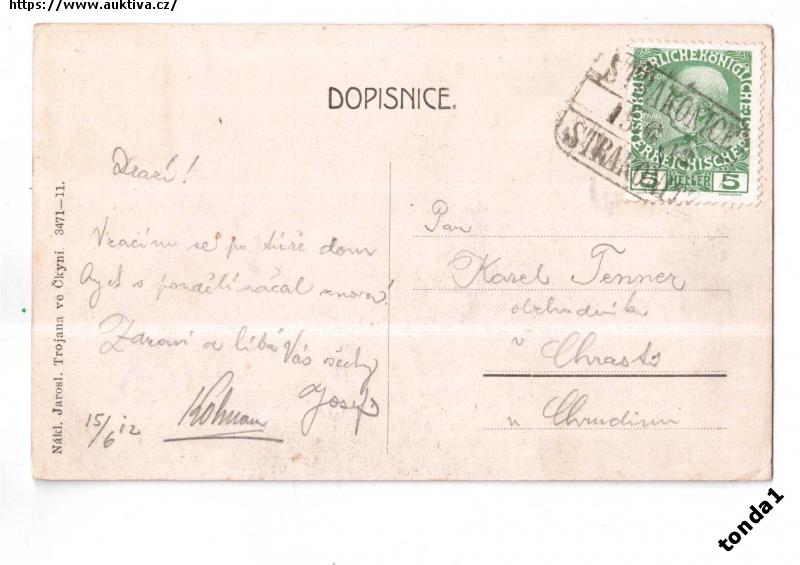 https://www.auktiva.cz/
DOPISNICE.
STRAKONICE
15
STRAKONITZ
KAISERLICHE KÖNIGLICHE
ÖSTERREICHISCHE
5 HELLER 5
Drazí!
Vracím se po túře dom
v pondělí začal znova!
Zdraví a líbá Vás všechny
Josef
15/6 12
Kohman
Pan
Karel Tenner
obchodník
v
Chrasti
u Chrudimi
Nákl. Jarosl. Trojana ve Čkyni 3471—11.
tonda1